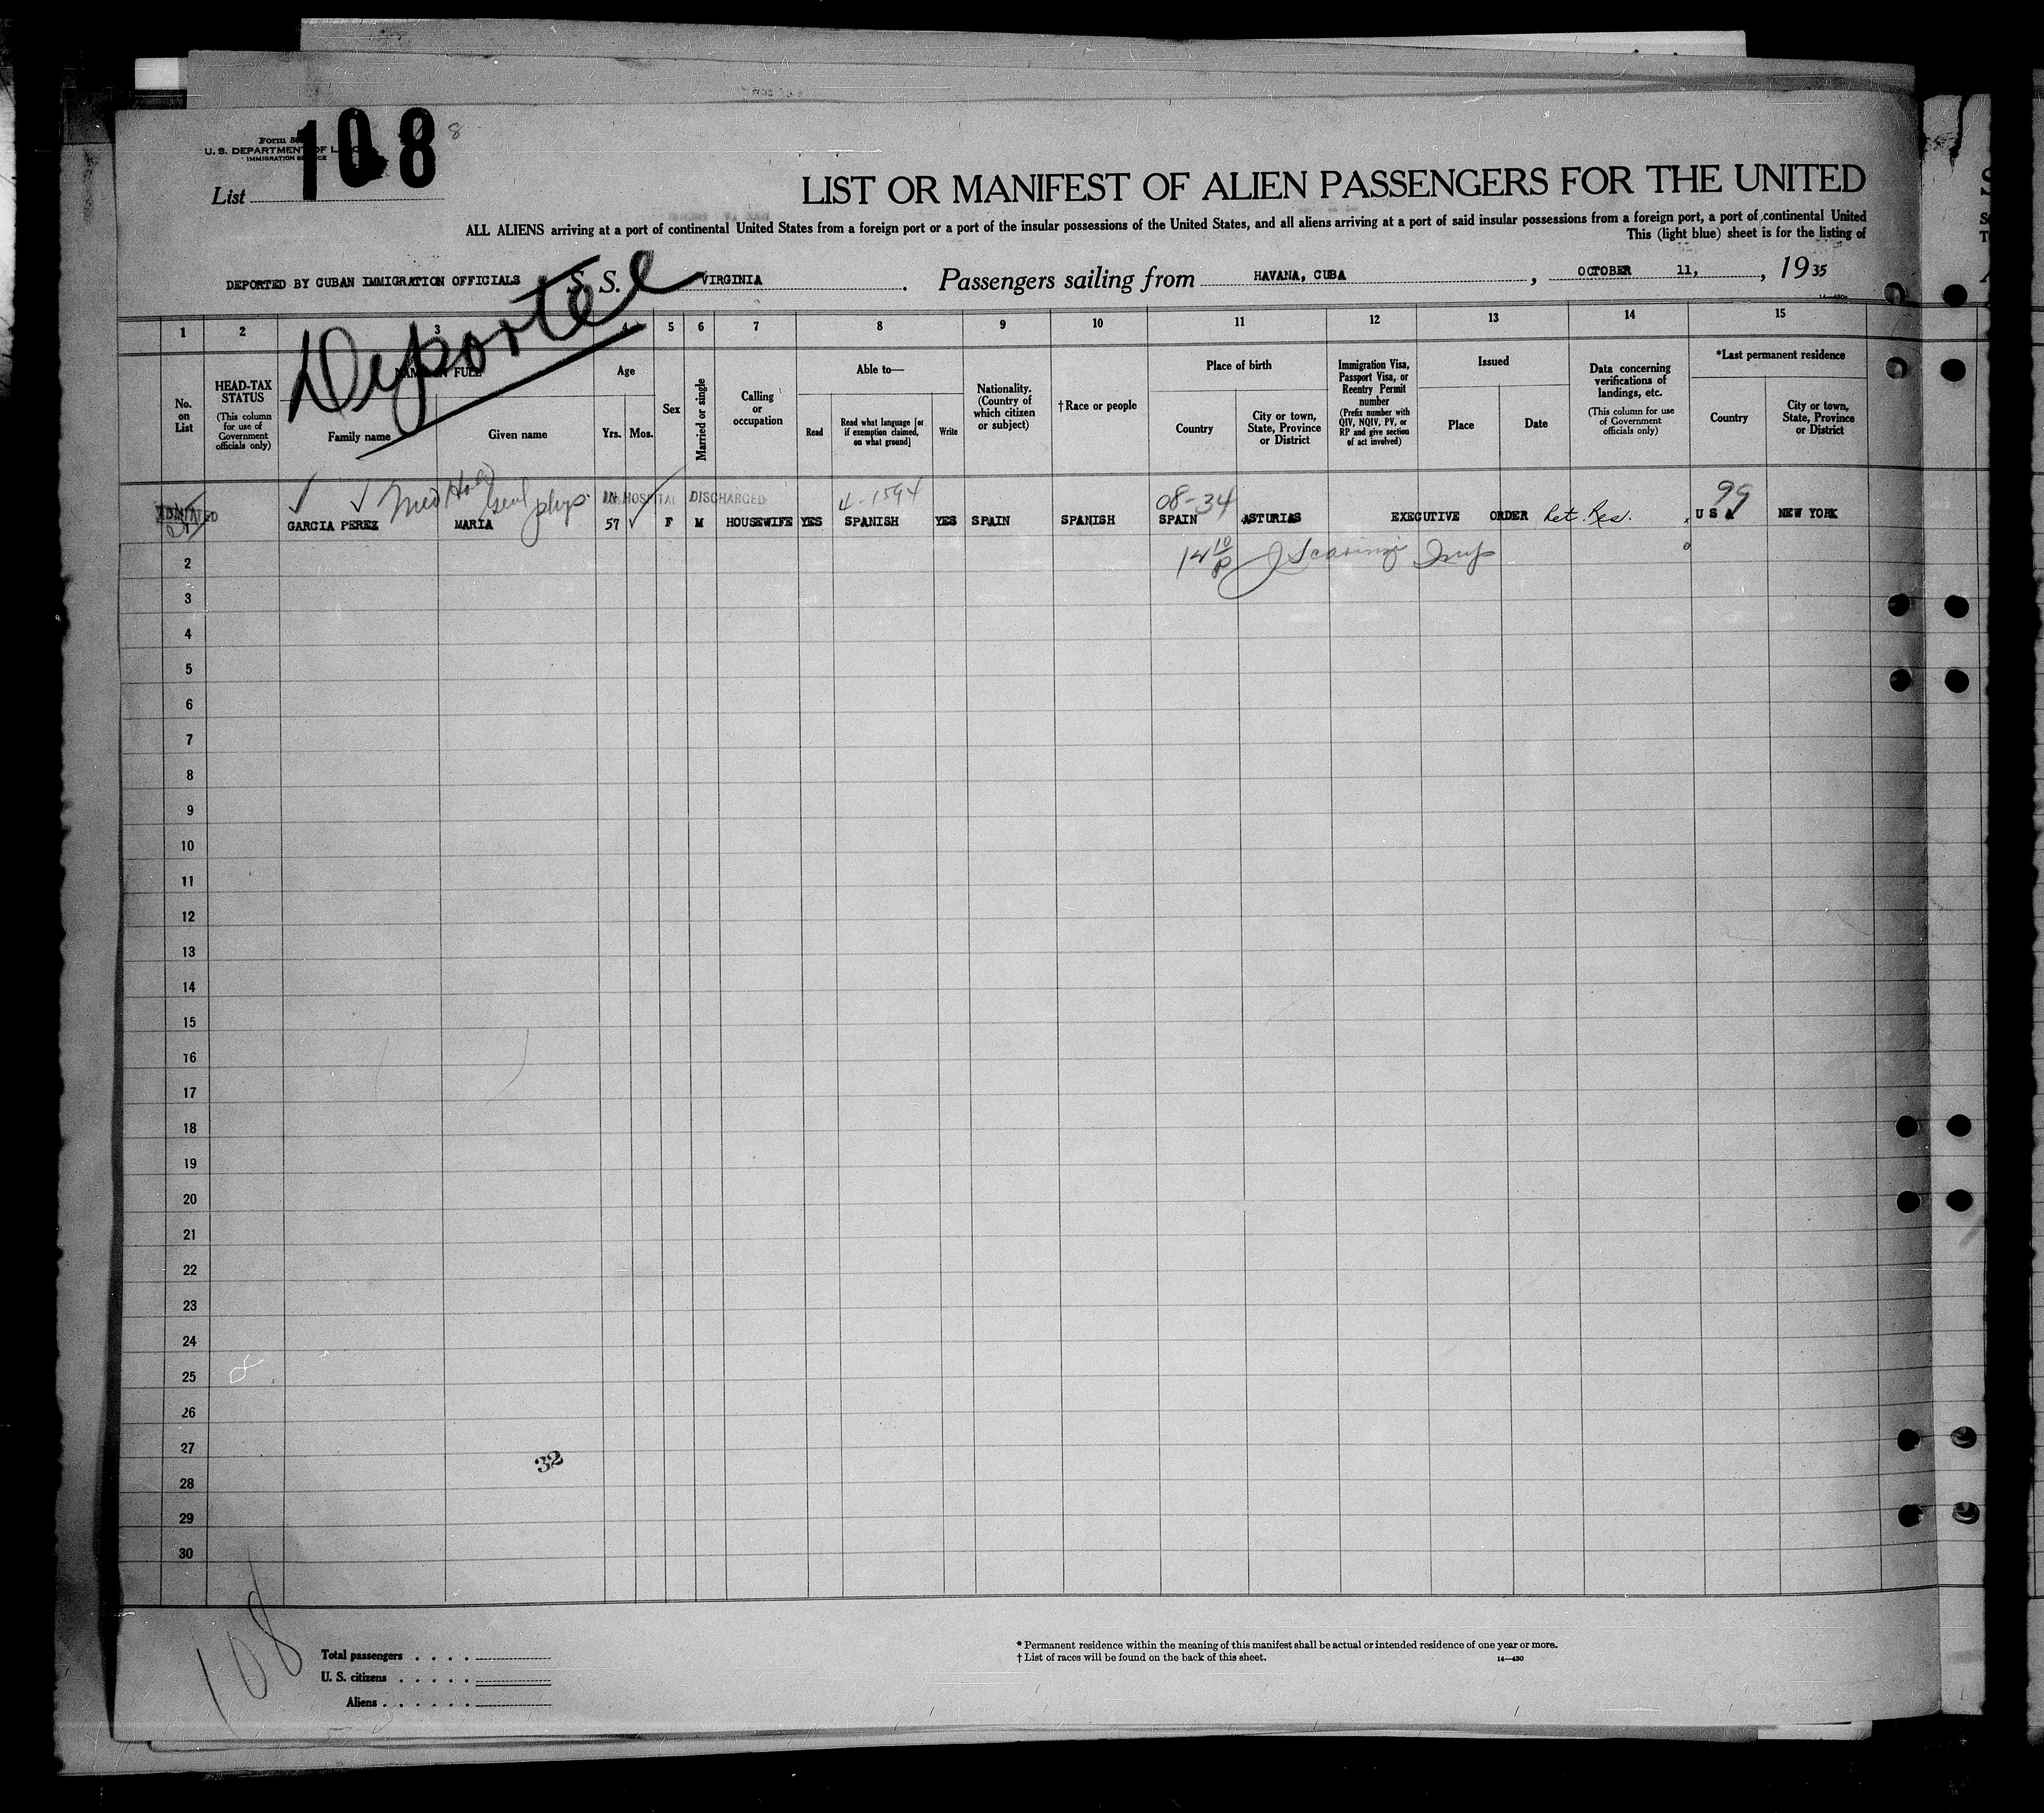 108
8
Form 50
U. S. DEPARTMENT OF L
IMMIGRATION SERVICE
List
LIST OR MANIFEST OF ALIEN PASSENGERS FOR THE UNITED
ALL ALIENS arriving at a port of continental United States from a foreign port or a part of the insular possessions of the United States, and all aliens arriving at a port of said insular possessions from a foreign port, a port of continental United
This (light blue) sheet is for the listing of
DEPORTED BY CUBAN IMMIGRATION OFFICIALS S. S. VIRGINIA . Passengers sailing from HAVANA, CUBA , OCTOBER 11, , 1935
Deported
1 2 3 4 5 6 7 8 9 10 11 12 13 14 15
No. on List
HEAD-TAX STATUS
(This column for use of Government officials only)
NAME IN FULL
Family name
Given name
Age
Yrs. Mos.
Sex
Married or single
Calling or occupation
Able to—
Read
Read what language [or if exemption claimed, on what ground]
Write
Nationality. (Country of which citizen or subject)
†Race or people
Place of birth
Country
City or town, State, Province or District
Immigration Visa, Passport Visa, or Reentry Permit number
(Prefix number with QIV, NQIV, PV, or RP and give section of act involved)
Issued
Place
Date
Data concerning verifications of landings, etc.
(This column for use of Government officials only)
*Last permanent residence
Country
City or town, State, Province or District
Med Hold Genl phys. IN HOSPITAL DISCHARGED 4-1594 08-34 99
ADMITTED
GARCIA PEREZ MARIA 57 F M HOUSEWIFE YES SPANISH YES SPAIN SPANISH SPAIN ASTURIAS EXECUTIVE ORDER Ret. Res. U S A NEW YORK
2
3
4
5
6
7
8
9
10
11
12
13
14
15
16
17
18
19
20
21
22
23
24
25
26
27
32
28
29
30
108
Total passengers . . . .
U. S. citizens . . . . .
Aliens . . . . . .
* Permanent residence within the meaning of this manifest shall be actual or intended residence of one year or more.
† List of races will be found on the back of this sheet.
14—430